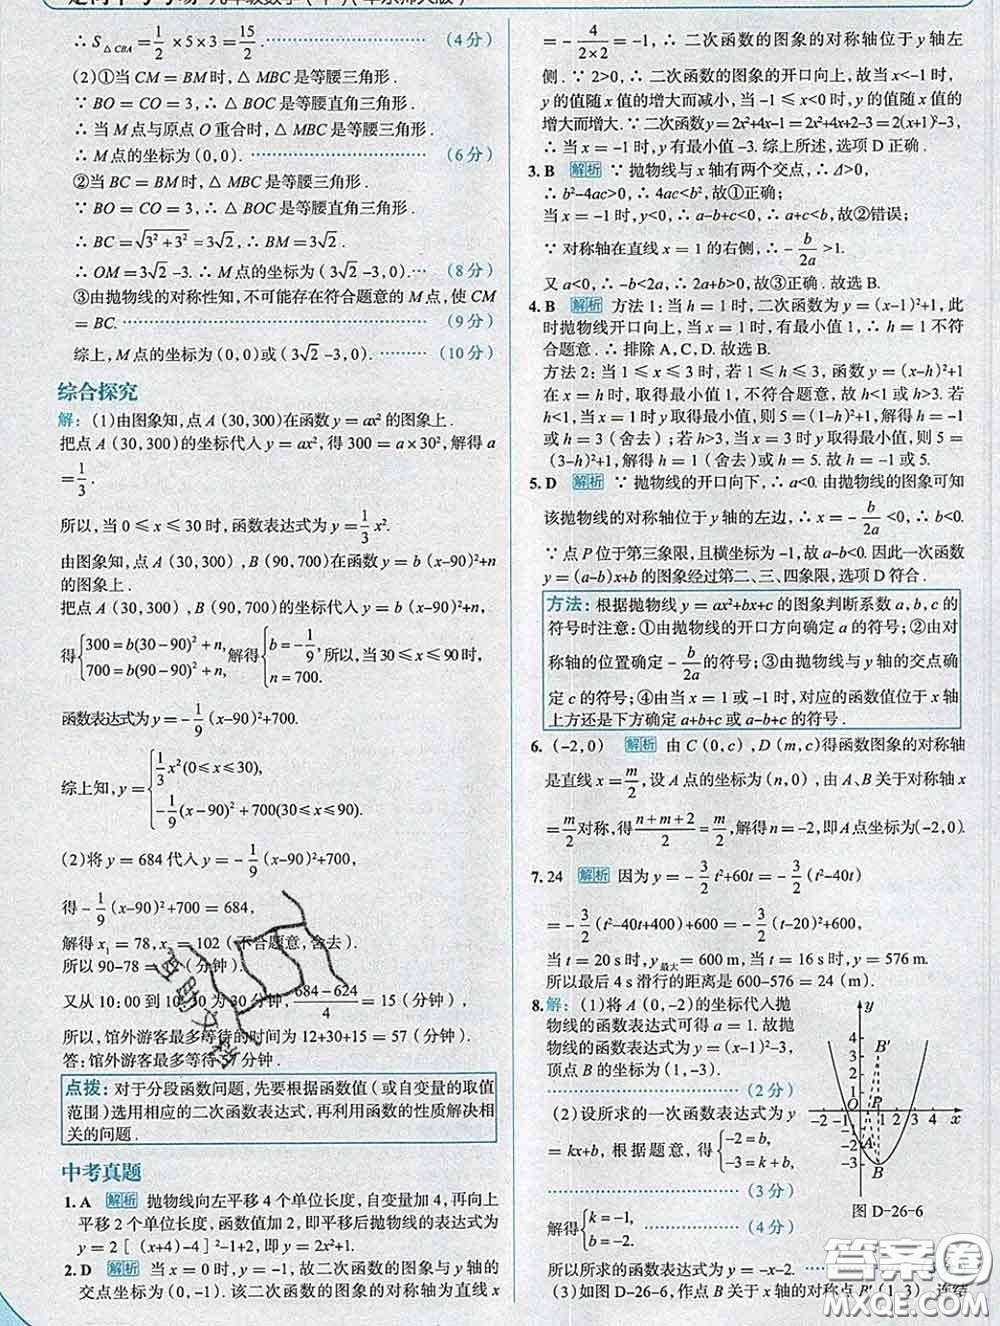 走向中考考场 九年级数学(下)(华东师大版)
∴ S△CBA = 1/2 ×5×3 = 15/2. (4分)
(2)①当 CM = BM 时,△MBC 是等腰三角形.
∵ BO = CO = 3,∴ △BOC 是等腰直角三角形.
∴ 当 M 点与原点 O 重合时,△MBC 是等腰三角形.
∴ M 点的坐标为(0,0). (6分)
②当 BC = BM 时,△MBC 是等腰三角形.
∵ BO = CO = 3,∴ △BOC 是等腰直角三角形.
∴ BC = √(3²+3²) = 3√2,∴ BM = 3√2.
∴ OM = 3√2 -3. ∴ M 点的坐标为(3√2 -3,0). (8分)
③由抛物线的对称性知,不可能存在符合题意的 M 点,使 CM
= BC. (9分)
综上,M 点的坐标为(0,0)或(3√2 -3,0). (10分)
综合探究
解:(1)由图象知,点 A(30,300)在函数 y = ax² 的图象上.
把点 A(30,300)的坐标代入 y = ax²,得 300 = a×30²,解得 a
= 1/3.
所以,当 0 ≤ x ≤ 30 时,函数表达式为 y = 1/3 x².
由图象知,点 A(30,300),B(90,700)在函数 y = b(x-90)²+n
的图象上.
把点 A(30,300),B(90,700)的坐标代入 y = b(x-90)²+n,
得 { 300 = b(30-90)²+n, 700 = b(90-90)²+n, 解得 { b = -1/9, n = 700. 所以,当 30 ≤ x ≤ 90 时,
函数表达式为 y = -1/9 (x-90)²+700.
综上知,y = { 1/3 x²(0≤x≤30), -1/9 (x-90)²+700(30≤x≤90).
(2)将 y = 684 代入 y = -1/9 (x-90)²+700,
得 -1/9 (x-90)²+700 = 684,
解得 x₁ = 78,x₂ = 102(不合题意,舍去).
所以 90-78 = (分钟).
又从 10:00 到 10:30 为 30 分钟,(684-624)/4 = 15(分钟),
所以,馆外游客最多等待的时间为 12+30+15 = 57(分钟).
答:馆外游客最多等待 57 分钟.
点拨:对于分段函数问题,先要根据函数值(或自变量的取值
范围)选用相应的二次函数表达式,再利用函数的性质解决相
关的问题.
中考真题
1. A 解析 抛物线向左平移 4 个单位长度,自变量加 4,再向上
平移 2 个单位长度,函数值加 2,即平移后抛物线的表达式为
y = 2[(x+4)-4]²-1+2,即 y = 2x²+1.
2. D 解析 当 x = 0 时,y = -1,故二次函数的图象与 y 轴的
交点坐标为(0,-1). 该二次函数的图象的对称轴为直线 x
= -4/(2×2) = -1,∴ 二次函数的图象的对称轴位于 y 轴左
侧. ∵ 2>0,∴ 二次函数的图象的开口向上,故当 x<-1 时,
y 的值随 x 值的增大而减小,当 -1 ≤ x<0 时,y 的值随 x 值的
增大而增大. ∵ 二次函数 y = 2x²+4x-1 = 2x²+4x+2-3 = 2(x+1)²-3,
∴ 当 x = -1 时,y 有最小值 -3. 综上所述,选项 D 正确.
3. B 解析 ∵ 抛物线与 x 轴有两个交点,∴ Δ>0,
∴ b²-4ac>0,∴ 4ac<b²,故①正确;
当 x = -1 时,y<0,∴ a-b+c<0,∴ a+c<b,故②错误;
∵ 对称轴在直线 x = 1 的右侧,∴ -b/2a >1.
又 a<0,∴ -b<2a,∴ 2a+b>0,故③正确. 故选 B.
4. B 解析 方法 1:当 h = 1 时,二次函数为 y = (x-1)²+1,此
时抛物线开口向上,当 x = 1 时,有最小值 1,∴ h = 1 不符
合题意. ∴ 排除 A,C,D. 故选 B.
方法 2:当 1 ≤ x ≤ 3 时,若 1 ≤ h ≤ 3,函数 y = (x-h)²+1
在 x = h 时,取得最小值 1,不符合题意,故 h<1 或 h>3. 若
h<1,当 x = 1 时 y 取得最小值,则 5 = (1-h)²+1,解得 h = -1
或 h = 3(舍去);若 h>3,当 x = 3 时 y 取得最小值,则 5 =
(3-h)²+1,解得 h = 1(舍去)或 h = 5. 故 h = -1 或 5.
5. D 解析 ∵ 抛物线的开口向下,∴ a<0. 由抛物线的图象可知
该抛物线的对称轴位于 y 轴的左边,∴ x = -b/2a <0,∴ b<0.
∵ 点 P 位于第三象限,且横坐标为 -1,故 a-b<0. 因此一次函数
y = (a-b)x+b 的图象经过第二、三、四象限,选项 D 符合.
方法:根据抛物线 y = ax²+bx+c 的图象判断系数 a,b,c 的
符号时注意:①由抛物线的开口方向确定 a 的符号;②由对
称轴的位置确定 -b/2a 的符号;③由抛物线与 y 轴的交点确
定 c 的符号;④由当 x = 1 或 -1 时,对应的函数值位于 x 轴
上方还是下方确定 a+b+c 或 a-b+c 的符号.
6. (-2,0) 解析 由 C(0,c),D(m,c)得函数图象的对称轴
是直线 x = m/2,设 A 点的坐标为(n,0),由 A、B 关于对称轴 x
= m/2 对称,得 (n+m+2)/2 = m/2,解得 n = -2,即 A 点坐标为(-2,0).
7. 24 解析 因为 y = -3/2 t²+60t = -3/2 (t²-40t)
= -3/2 (t²-40t+400)+600 = -3/2 (t-20)²+600,
当 t = 20 s 时,y最大 = 600 m,当 t = 16 s 时,y = 576 m.
所以最后 4 s 滑行的距离是 600-576 = 24(m).
8. 解:(1)将 A(0,-2)的坐标代入抛
物线的函数表达式可得 a = 1. 故抛
物线的函数表达式为 y = (x-1)²-3,
顶点 B 的坐标为(1,-3).
(2分)
(2)设所求的一次函数表达式为 y
= kx+b,根据题意,得 { -2 = b, -3 = k+b,
(3分)
解得 { k = -1, b = -2. (4分)
所以所求的函数表达式为 y = -x-2.
(3)如图 D-26-6,作点 B 关于 x 轴的对称点 B′(1,3),连结
y
4
3
2
1
B′
-2 -1 O P 1 2 3 4 x
-1
-2
-3
A
B
图 D-26-6
答案圈
MXQE.COM